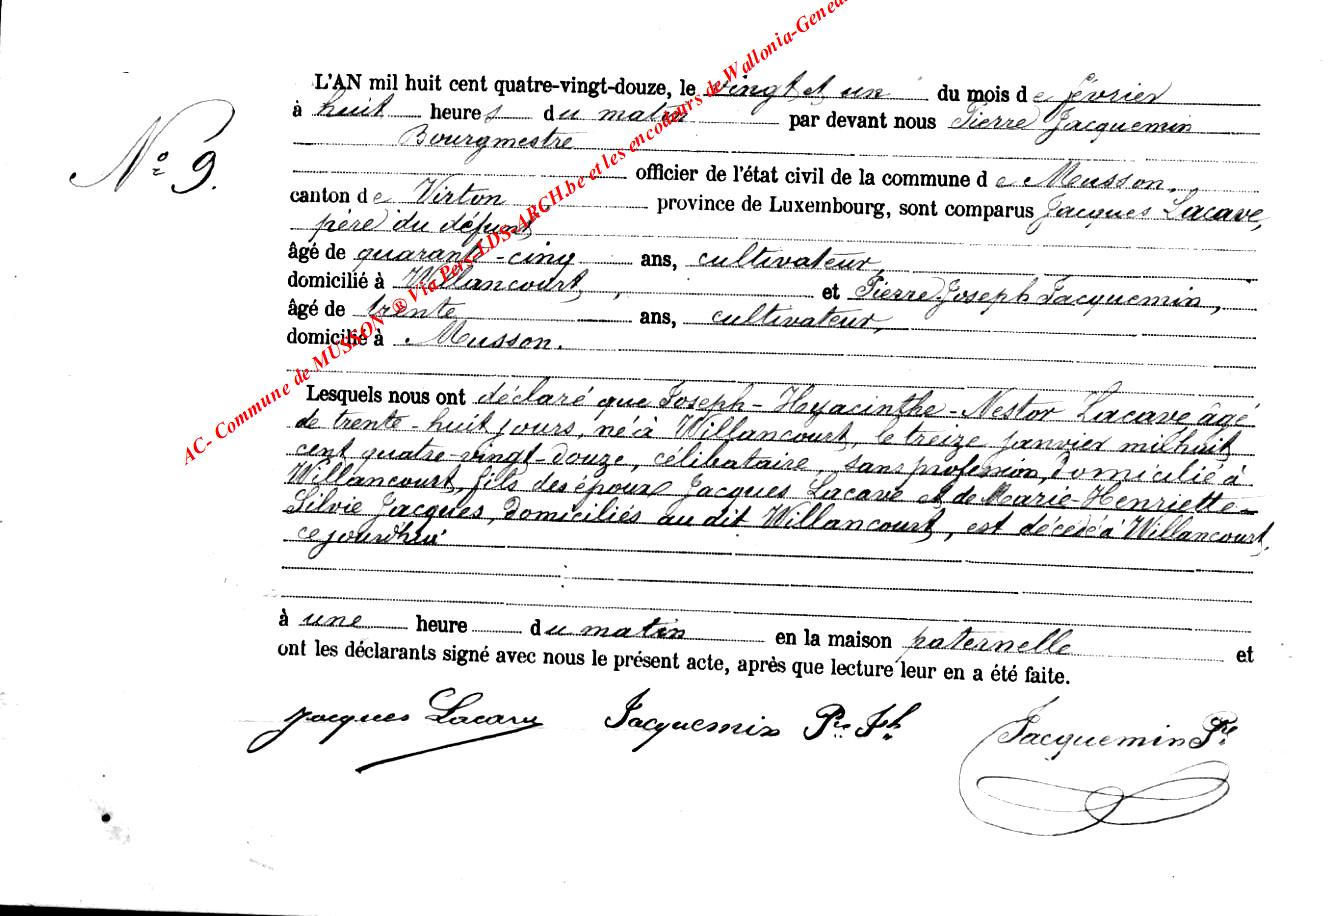 L'AN mil huit cent quatre-vingt-douze, le vingt et un du mois de février
à huit heures du matin par devant nous Pierre Jacquemin
Bourgmestre
N° 9.
officier de l'état civil de la commune de Musson,
canton de Virton province de Luxembourg, sont comparus Jacques Lacave,
père du défunt
âgé de quarante-cinq ans, cultivateur,
domicilié à Willancourt, et Pierre Joseph Jacquemin,
âgé de trente ans, cultivateur,
domicilié à Musson.
Lesquels nous ont déclaré que Joseph-Hyacinthe-Nestor Lacave âgé
de trente-huit jours, né à Willancourt, le treize janvier mil huit
cent quatre-vingt-douze, célibataire, sans profession, domicilié à
Willancourt, fils des époux Jacques Lacave et de Marie-Henriette-
Silvie Jacques, domiciliés au dit Willancourt, est décédé à Willancourt,
ce jourd'hui
à une heure du matin en la maison paternelle et
ont les déclarants signé avec nous le présent acte, après que lecture leur en a été faite.
Jacques Lacave Jacquemin Pre Jh Jacquemin Pre
AC- Commune de MUSSON ® Via Pers-LDS-ARCH.be et les encodeurs de Wallonia-Genea